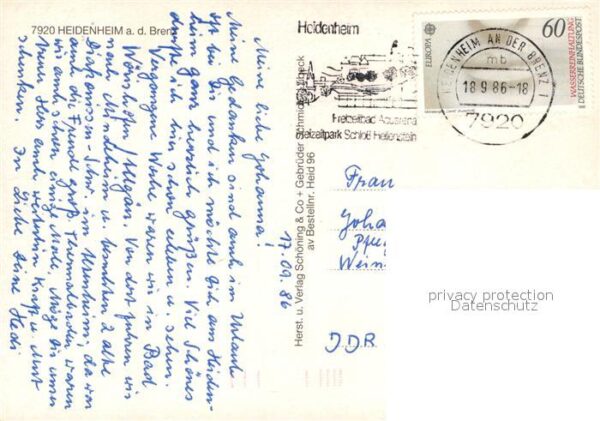 7920 HEIDENHEIM a. d. Brenz
Meine liche Johanna!
Meine Gedanken sind auch im Urlaub
oft bei Dir und ich möchte Dich aus Heiden-
heim ganz herzlich grüßen. Viel Schönes
durfte ich hier schon erleben u. sehen.
Vergangene Woche waren wir in Bad
Wörishofen/Allgäu. Von dort fuhren wir
nach Mindelheim u. besuchten 2 alte
Diakonissen-Schw. im Altenheim, da war
auch die Freude groß. Thermalbaden waren
wir auch schon einige Male. Möge Dir unser
Herr auch weiterhin Kraft u. Mut
schenken. In Liebe Deine Hedi
17.09.86
Herst. u. Verlag Schöning & Co + Gebrüder Schmidt, Lübeck
av Bestellnr. Heid 96
Heidenheim
Freizeitbad Aquarena
Freizeitpark Schloß Hellenstein
EUROPA
60
WASSERREINHALTUNG
DEUTSCHE BUNDESPOST
HEIDENHEIM AN DER BRENZ 1
mb
18.9.86-18
7920
Frau
Joha
Weim
DDR
privacy protection
Datenschutz